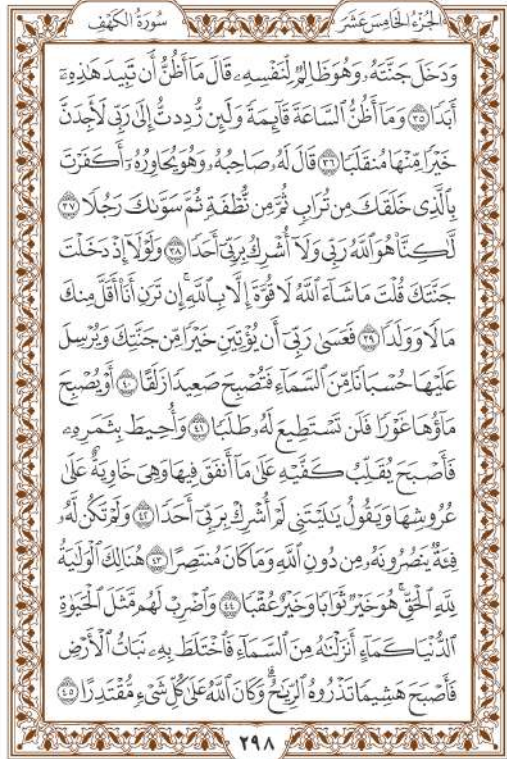 الجُزءُ الخَامِسَ عَشَرَ سُورَةُ الكَهْفِ
وَدَخَلَ جَنَّتَهُۥ وَهُوَ ظَالِمٌ لِّنَفْسِهِۦ قَالَ مَآ أَظُنُّ أَن تَبِيدَ هَٰذِهِۦٓ
أَبَدًا ٣٥ وَمَآ أَظُنُّ ٱلسَّاعَةَ قَآئِمَةً وَلَئِن رُّدِدتُّ إِلَىٰ رَبِّى لَأَجِدَنَّ
خَيْرًا مِّنْهَا مُنقَلَبًا ٣٦ قَالَ لَهُۥ صَاحِبُهُۥ وَهُوَ يُحَاوِرُهُۥٓ أَكَفَرْتَ
بِٱلَّذِى خَلَقَكَ مِن تُرَابٍ ثُمَّ مِن نُّطْفَةٍ ثُمَّ سَوَّىٰكَ رَجُلًا ٣٧
لَّٰكِنَّا۠ هُوَ ٱللَّهُ رَبِّى وَلَآ أُشْرِكُ بِرَبِّىٓ أَحَدًا ٣٨ وَلَوْلَآ إِذْ دَخَلْتَ
جَنَّتَكَ قُلْتَ مَا شَآءَ ٱللَّهُ لَا قُوَّةَ إِلَّا بِٱللَّهِ ۚ إِن تَرَنِ أَنَا۠ أَقَلَّ مِنكَ
مَالًا وَوَلَدًا ٣٩ فَعَسَىٰ رَبِّىٓ أَن يُؤْتِيَنِ خَيْرًا مِّن جَنَّتِكَ وَيُرْسِلَ
عَلَيْهَا حُسْبَانًا مِّنَ ٱلسَّمَآءِ فَتُصْبِحَ صَعِيدًا زَلَقًا ٤٠ أَوْ يُصْبِحَ
مَآؤُهَا غَوْرًا فَلَن تَسْتَطِيعَ لَهُۥ طَلَبًا ٤١ وَأُحِيطَ بِثَمَرِهِۦ
فَأَصْبَحَ يُقَلِّبُ كَفَّيْهِ عَلَىٰ مَآ أَنفَقَ فِيهَا وَهِىَ خَاوِيَةٌ عَلَىٰ
عُرُوشِهَا وَيَقُولُ يَٰلَيْتَنِى لَمْ أُشْرِكْ بِرَبِّىٓ أَحَدًا ٤٢ وَلَمْ تَكُن لَّهُۥ
فِئَةٌ يَنصُرُونَهُۥ مِن دُونِ ٱللَّهِ وَمَا كَانَ مُنتَصِرًا ٤٣ هُنَالِكَ ٱلْوَلَٰيَةُ
لِلَّهِ ٱلْحَقِّ ۚ هُوَ خَيْرٌ ثَوَابًا وَخَيْرٌ عُقْبًا ٤٤ وَٱضْرِبْ لَهُم مَّثَلَ ٱلْحَيَوٰةِ
ٱلدُّنْيَا كَمَآءٍ أَنزَلْنَٰهُ مِنَ ٱلسَّمَآءِ فَٱخْتَلَطَ بِهِۦ نَبَاتُ ٱلْأَرْضِ
فَأَصْبَحَ هَشِيمًا تَذْرُوهُ ٱلرِّيَٰحُ ۗ وَكَانَ ٱللَّهُ عَلَىٰ كُلِّ شَىْءٍ مُّقْتَدِرًا ٤٥
٢٩٨